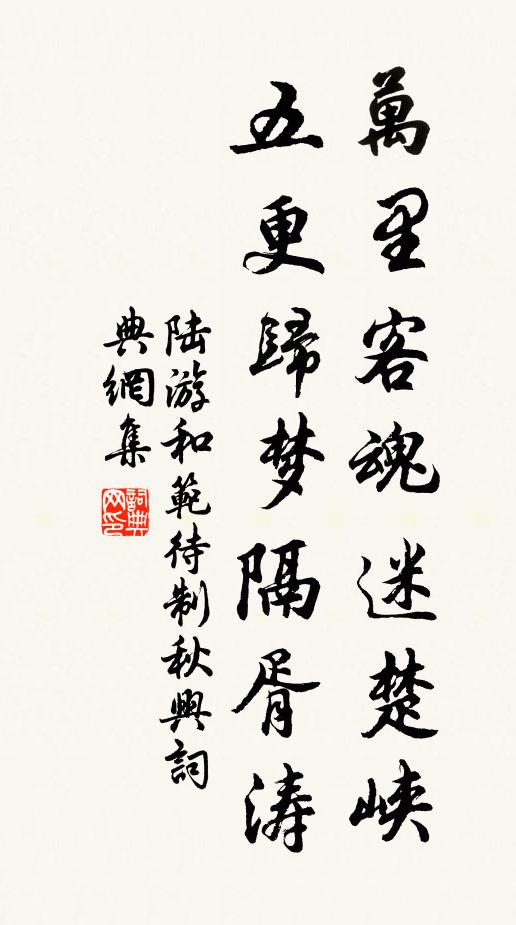 萬里客魂迷楚峽
五更歸梦隔胥涛
陆游和範待制秋興詞
典網集
詞典网印